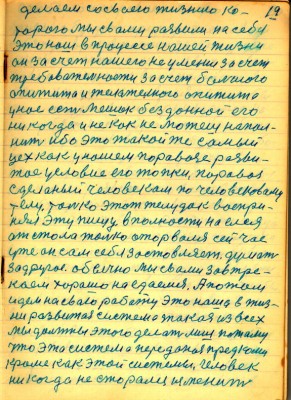 19
делаем со своего жизнию ко-
торого мы с вами развили на себу
Это наш в процессе нашей жизни
он за счет нашего не умения за счет
требовательности за счет большого
аппетита и
у нас есть мешок бездонной его
никогда и не как не можеш напол-
нит ибо это такой же самый
цех как у нашем паравозе разви-
тое условие его топки, паравоз
сделаный человекам по человековому
телу, толко этот желудак воспри-
нял эту пищу вполности наелся
от стола толко оторвался сей час
уже он сам себя заставляет думат
за другое. обычно мы с вами завтра-
каем хорошо наедаемся. А потом
идем на сваю работу это наша в жиз-
ни развитая система такая из всех
мы должны этого делат патаму
что эта система перодоная пред кому
кроме как этой системы, человек
никогда не старался изменит